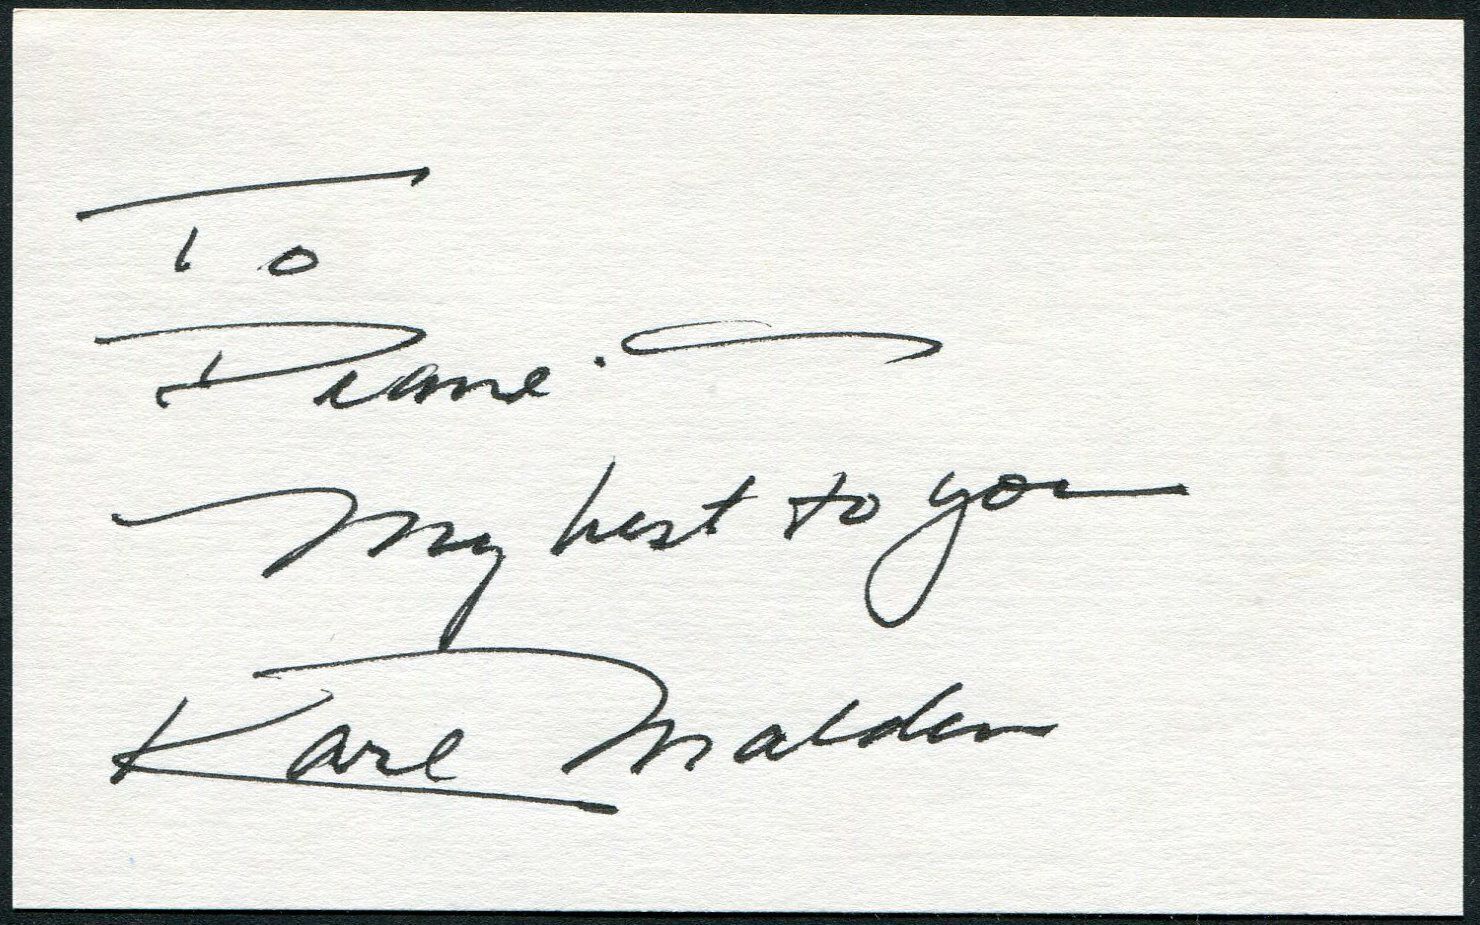 To
Diane.
My best to you
Karl Malden